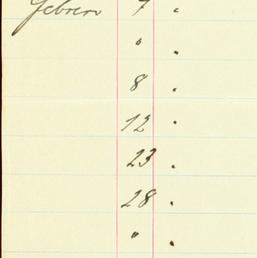 Febrero 7 "
" "
8 "
12 "
23 "
28 "
" "